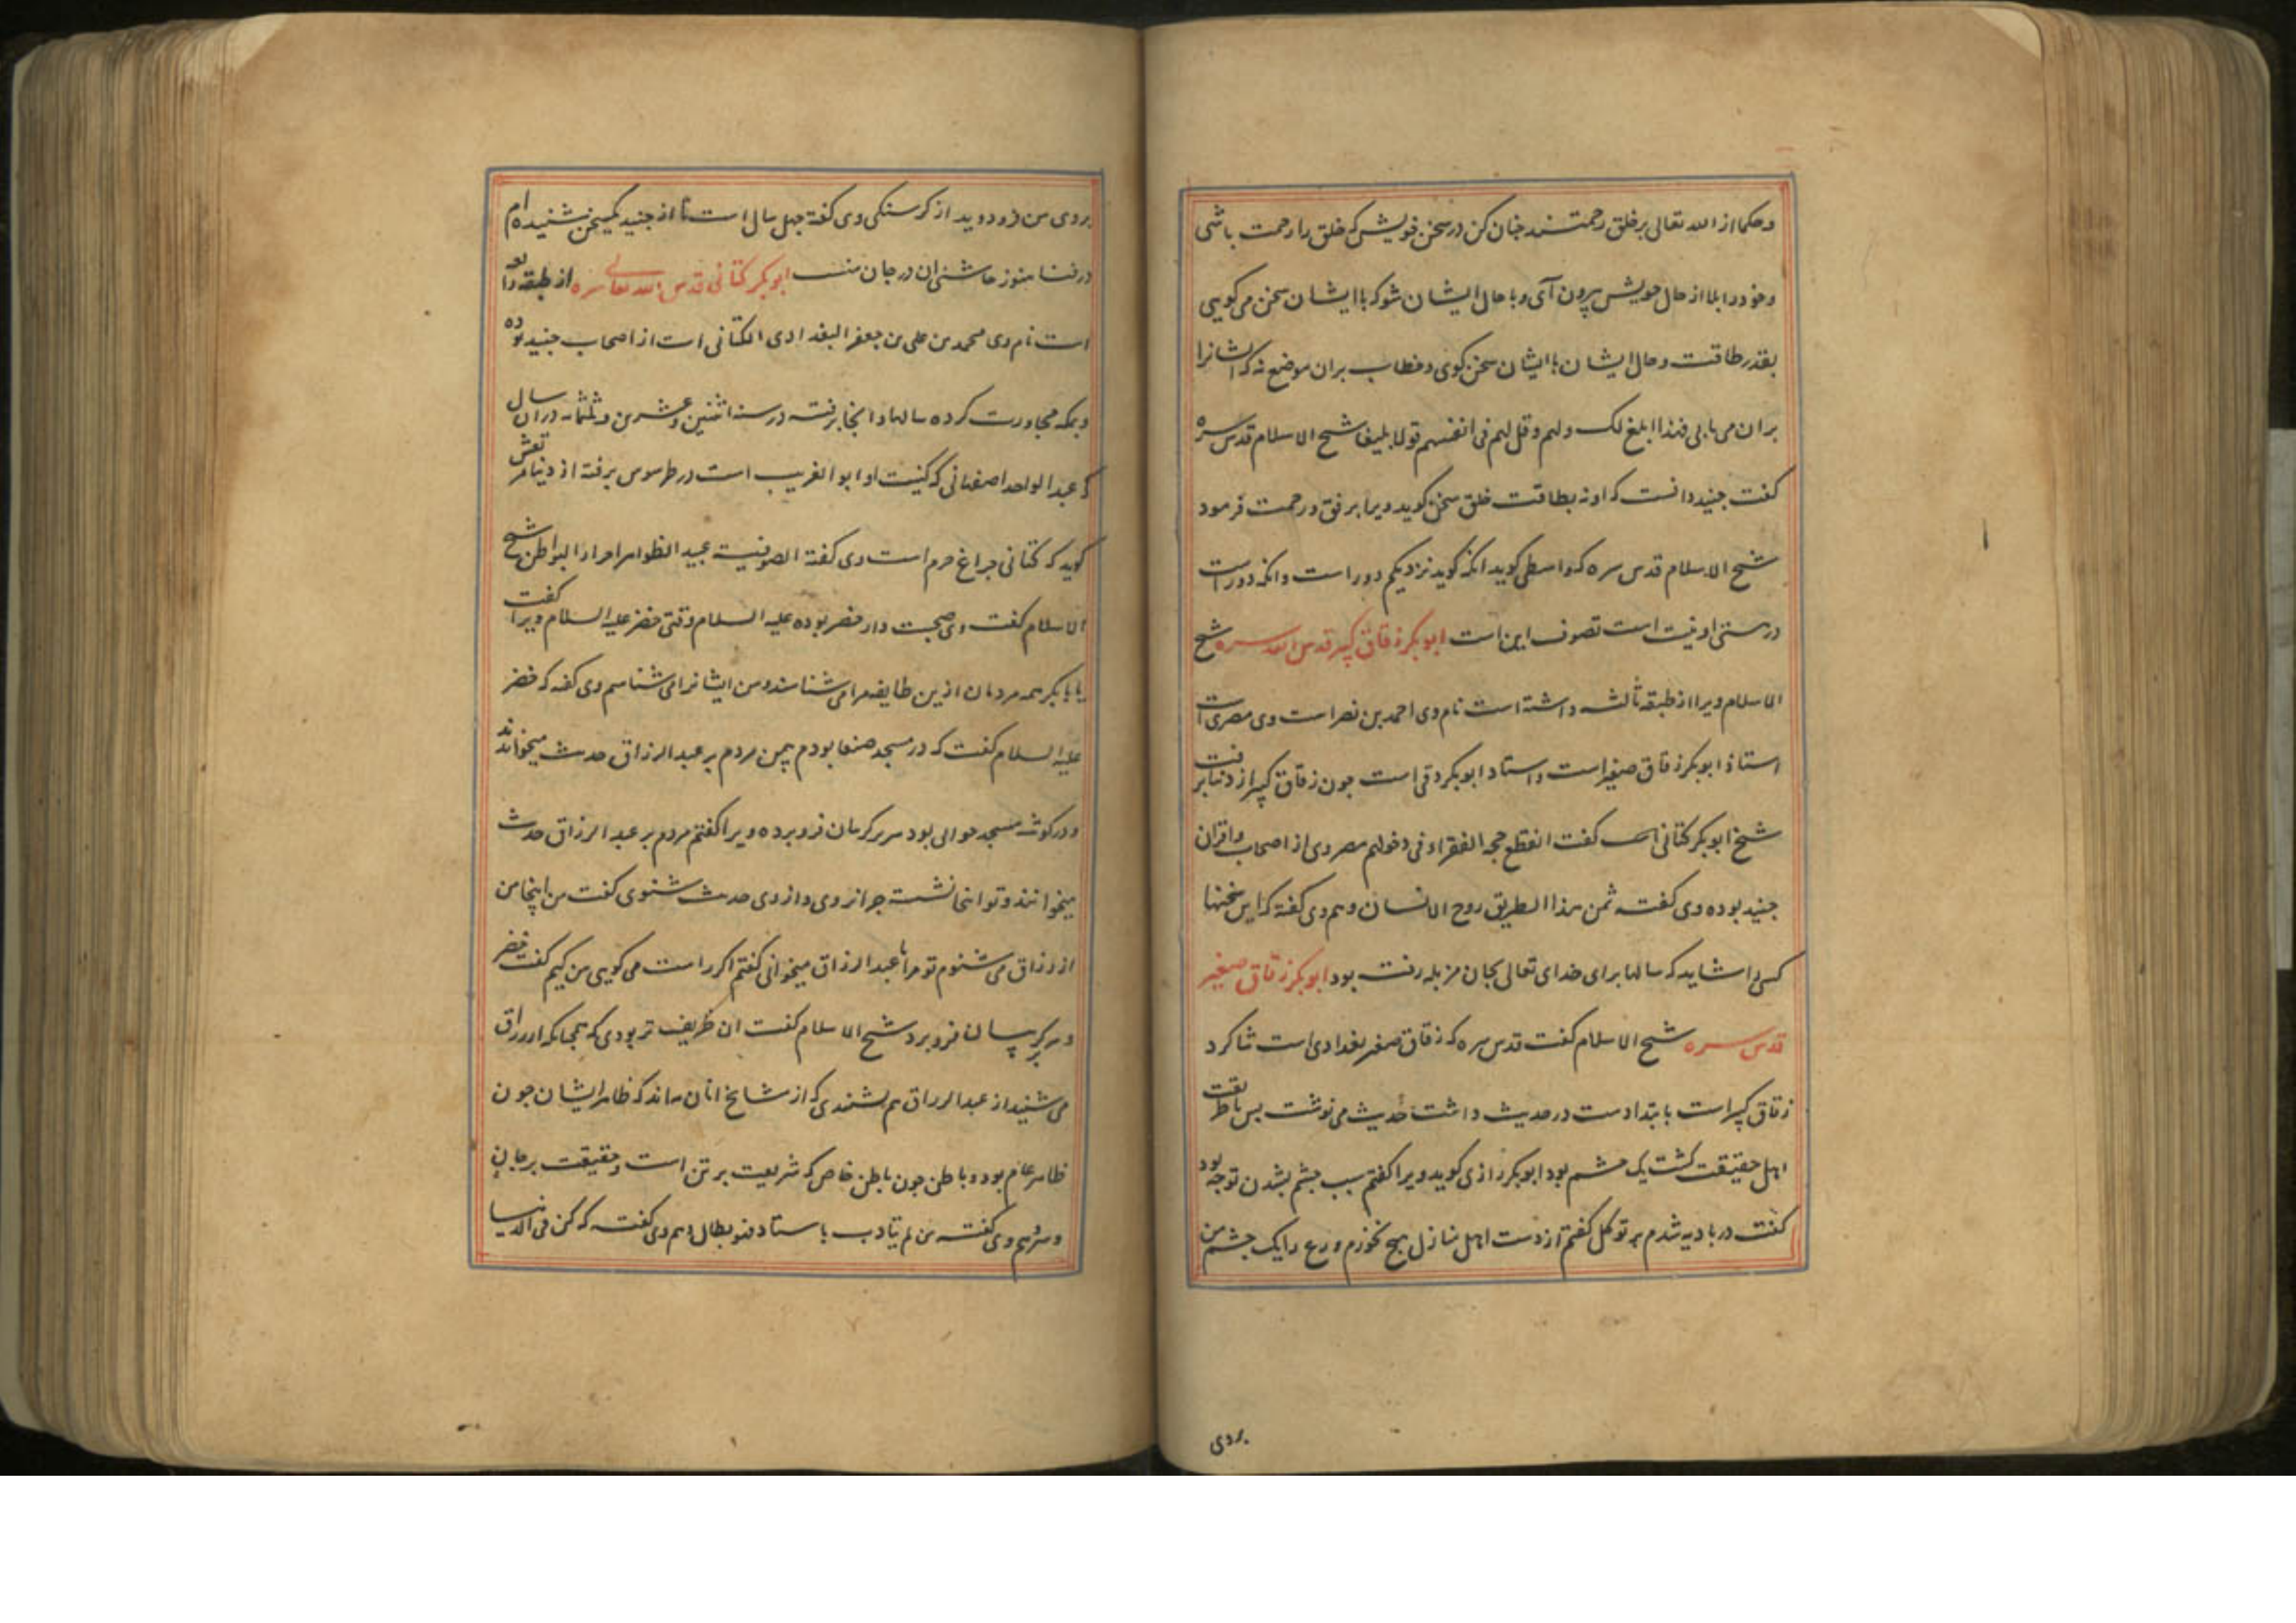 وحکما از الله تعالی بر خلق رحمتند چنان کن در سخن خویش که خلق را رحمت باشی
وخود در ابلا از حال خویش بیرون آی و با حال ایشان شو که با ایشان سخن می کویی
بقدر طاقت و حال ایشان با ایشان سخن کوی و خطاب بران موضع نه که ایشانرا
بران می یابی فهذا ابلغ لک ولهم وقل لهم فی انفسهم قولا بلیغا شیخ الاسلام قدس سره
کفت جنید دانست که او نه بطاقت خلق سخن کوید ویرا برفق و رحمت فرمود
شیخ الاسلام قدس سره که واسطی کوید انکه کوید نزدیکم دور است وانکه دور است
در هستی او نیست است تصوف این است ابوبکر زقاق کبیر قدس الله سره شیخ
الاسلام ویرا از طبقه ثالثه داشته است نام وی احمد بن نصر است وی مصری است
استاذ ابوبکر زقاق صغیر است و استاد ابوبکر دقی است چون زقاق کبیر از دنیا برفت
شیخ ابوبکر کتانی کفت انقطع حجة الفقراء فی دخولهم مصر وی از اصحاب و اقران
جنید بوده وی کفته ثمن هذا الطریق روح الانسان وهم وی کفته که این سخنها
کسی را شاید که سالها برای خدای تعالی بجان مزبله رفته بود ابوبکر زقاق صغیر
قدس سره شیخ الاسلام کفت قدس سره که زقاق صغیر بغدادی است شاکرد
زقاق کبیر است بابتدا دست در حدیث داشت حدیث می نوشت پس با طریقت
اهل حقیقت کشت یک چشم بود ابوبکر رازی کوید ویرا کفتم سبب چشم بشدن تو چه بود
کفت در بادیه شدم بر توکل کفتم از دست اهل منازل هیچ نخورم ورع را یک چشم من
بروی
بروی من فرو دوید از کرسنکی وی کفته چهل سال است تا از جنید یکسخن شنیده ام
در فنا هنوز چاشنی ان در جان منست ابوبکر کتانی قدس الله تعالی سره از طبقه رابعه
است نام وی محمد بن علی بن جعفر البغدادی الکتانی است از اصحاب جنید بوده
وبمکه مجاورت کرده سالها وانجا برفته در سنه اثنین وعشرین وثلثمایه دران سال
که عبد الواحد اصفهانی که کنیت او ابو الغریب است در طرسوس برفته از دنیا مرتعش
کوید که کتانی چراغ حرم است وی کفته الصوفیه عبید الظواهر احرار البواطن شیخ
الاسلام کفت وی صحبت دار خضر بوده علیه السلام وقتی خضر علیه السلام ویرا کفت
یا بابکر همه مردمان ازین طایفه مرا می شناسند و من ایشانرا می شناسم وی کفته که خضر
علیه السلام کفت که در مسجد صنعا بودم بیمن مردم بر عبد الرزاق حدیث میخواندند
ودر کوشه مسجد جوانی بود سر بر کریبان فرو برده ویرا کفتم مردم بر عبد الرزاق حدیث
میخوانند و تو اینجا نشسته چرا نروی و از وی حدیث شنوی کفت من اینجا من
از رزاق می شنوم تو مرا با عبد الرزاق میخوانی کفتم اکر راست می کویی من کیم کفت خضر
و سر بکریبان فرو برد شیخ الاسلام کفت ان ظریف تر بودی که همچنانکه از رزاق
می شنید از عبد الرزاق هم بشنیدی که از مشایخ انان ماند که ظاهر ایشان چون
ظاهر عام بود و باطن چون باطن خاص که شریعت بر تن است و حقیقت بر جان
و سر وهم وی کفته من لم یتادب باستاد فهو بطال وهم وی کفته که کن فی الدنیا